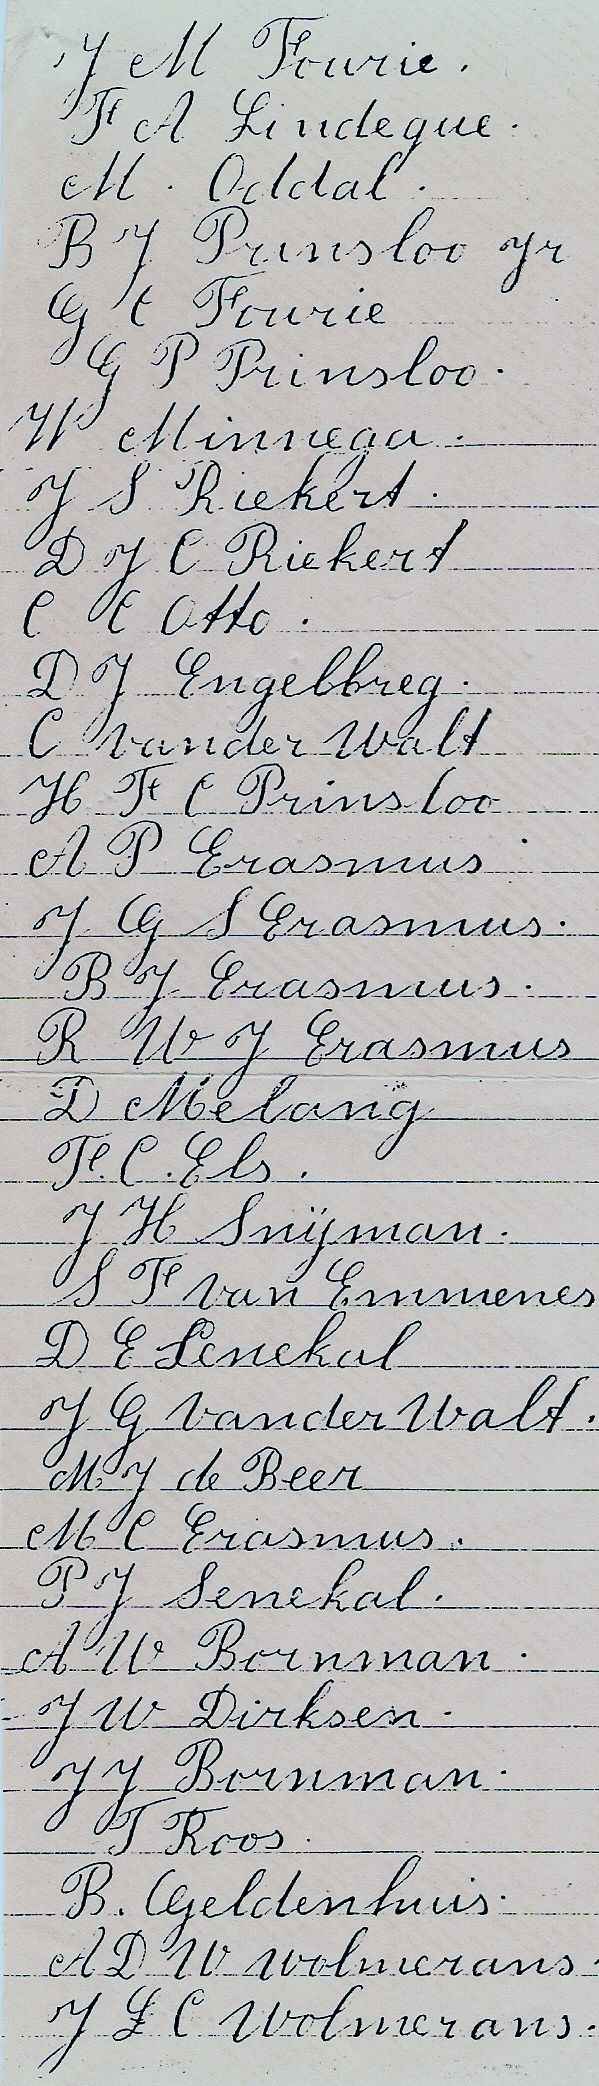 J M Fourie.
F A Lindeque.
M. Oddal.
B J Prinsloo Jr
G C Fourie
G P Prinsloo.
W Minnega.
J S Riekert.
D J C Riekert
C C Otto.
D J Engelbreg.
C van der Walt
H F C Prinsloo
A P Erasmus
J G S Erasmus.
B J Erasmus.
R W J Erasmus
D Melang
F. C. Els.
J H Snÿman.
S F van Emmenes
D E Senekal
J G van der Walt.
M J de Beer
M C Erasmus.
P J Senekal.
A W Bornman.
J W Dirksen.
J J Bornman.
T Roos.
B. Geldenhuis.
A D W Wolmerans.
J L C Wolmerans.